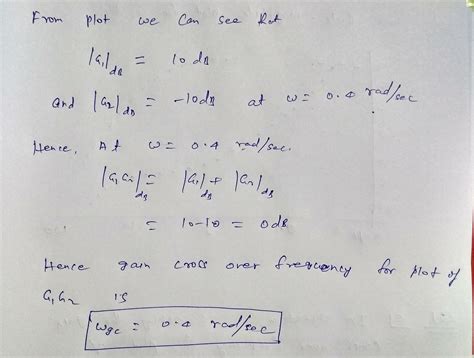 From plot we can see that
|G₁|dB = 10 dB
and |G₂|dB = -10dB at ω = 0.4 rad/sec
Hence, At ω = 0.4 rad/sec.
|G₁G₂|dB = |G₁|dB + |G₂|dB
= 10-10 = 0dB
Hence gain cross over frequency for plot of
G₁G₂ is
ωgc = 0.4 rad/sec